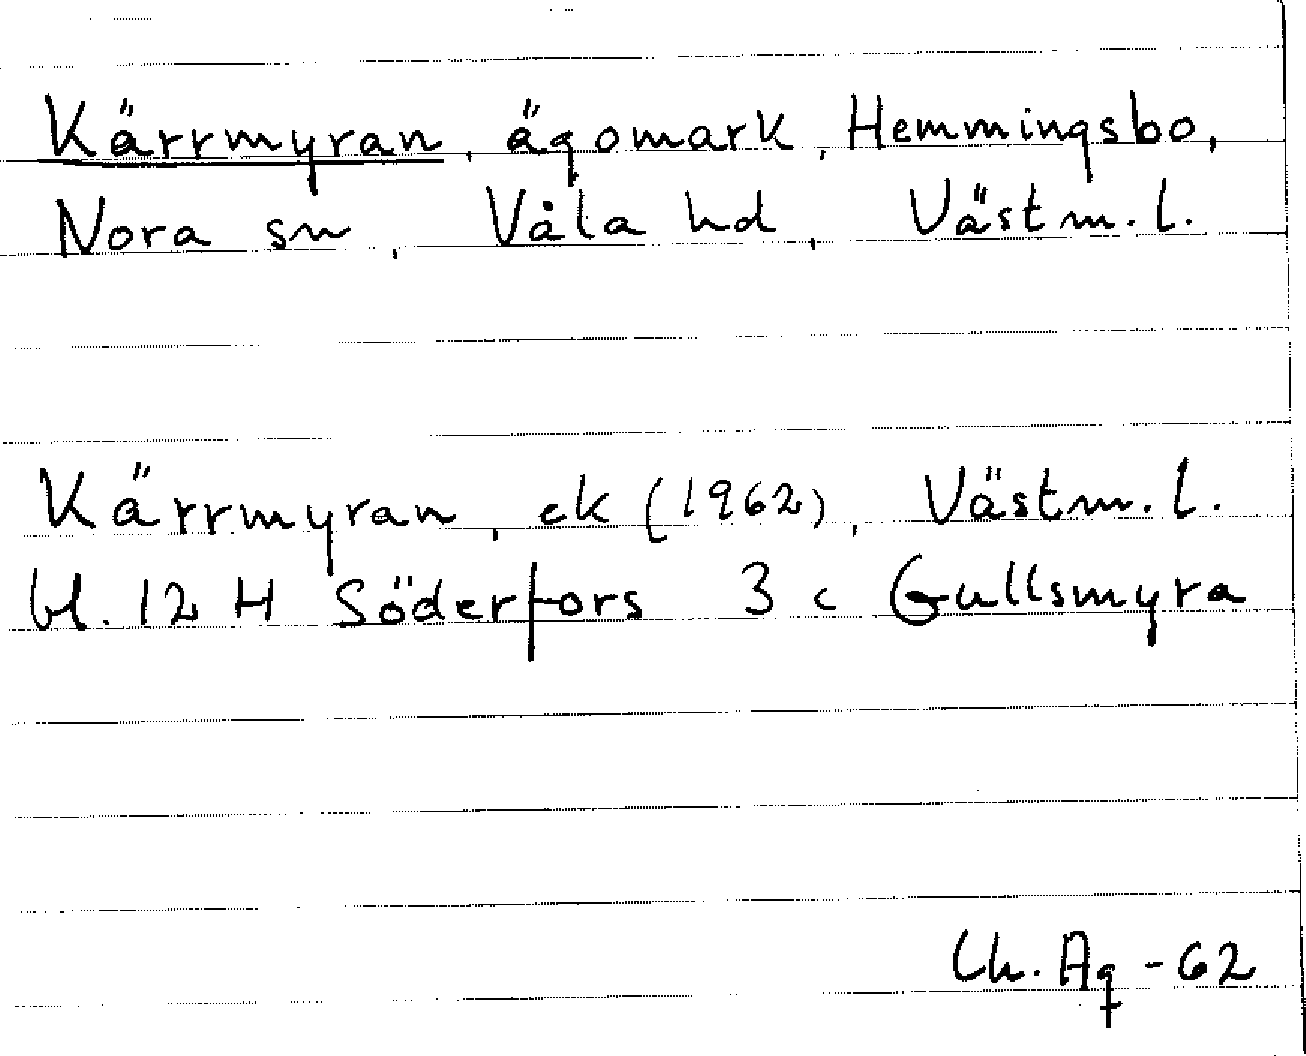 Kärrmyran, ägomark, Hemmingsbo,
Nora sn, Våla hd, Västm. l.
Kärrmyran, ek (1962), Västm. l.
bl. 12 H Söderfors 3 c Gullsmyra
Ch. Ag -62